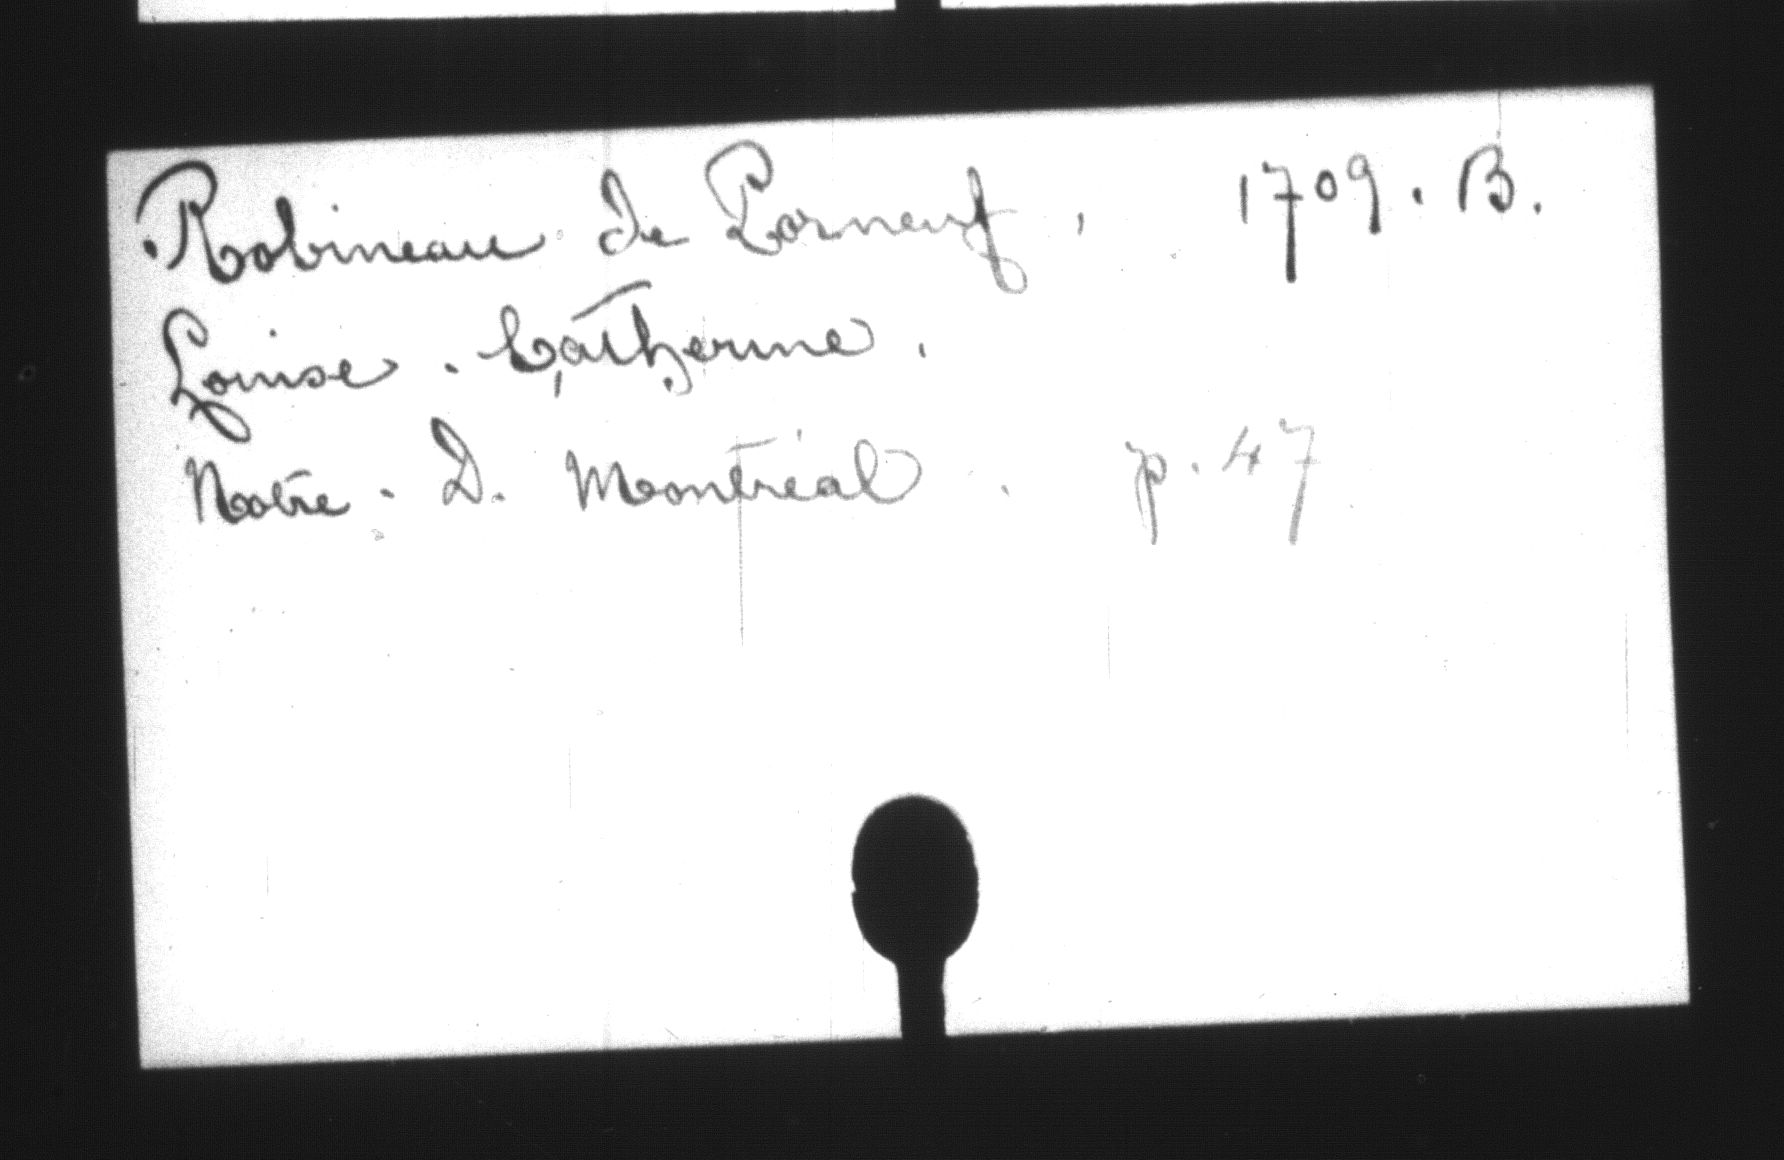 Robineau de Porneuf, 1709. B.
Louise. Catherine.
Notre. D. Montréal. p. 47